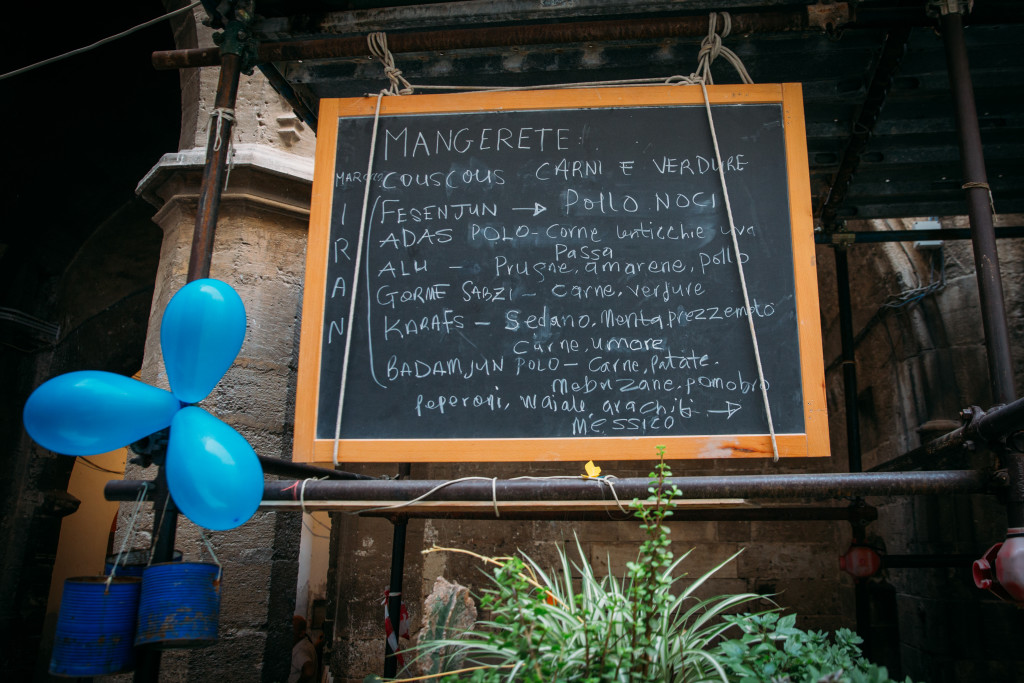 MANGERETE
MAROCCO COUSCOUS CARNI E VERDURE
IRAN
FESENJUN → POLLO NOCI
ADAS POLO - Carne lenticchie uva
Passa
ALU - Prugne, amarene, pollo
GORME SABZI - carne, verdure
KARAFS - Sedano, Menta, Prezzemolo
carne, umore
BADAMJUN POLO - Carne, patate.
melanzane, pomodoro
peperoni, maiale, arachidi →
MESSICO